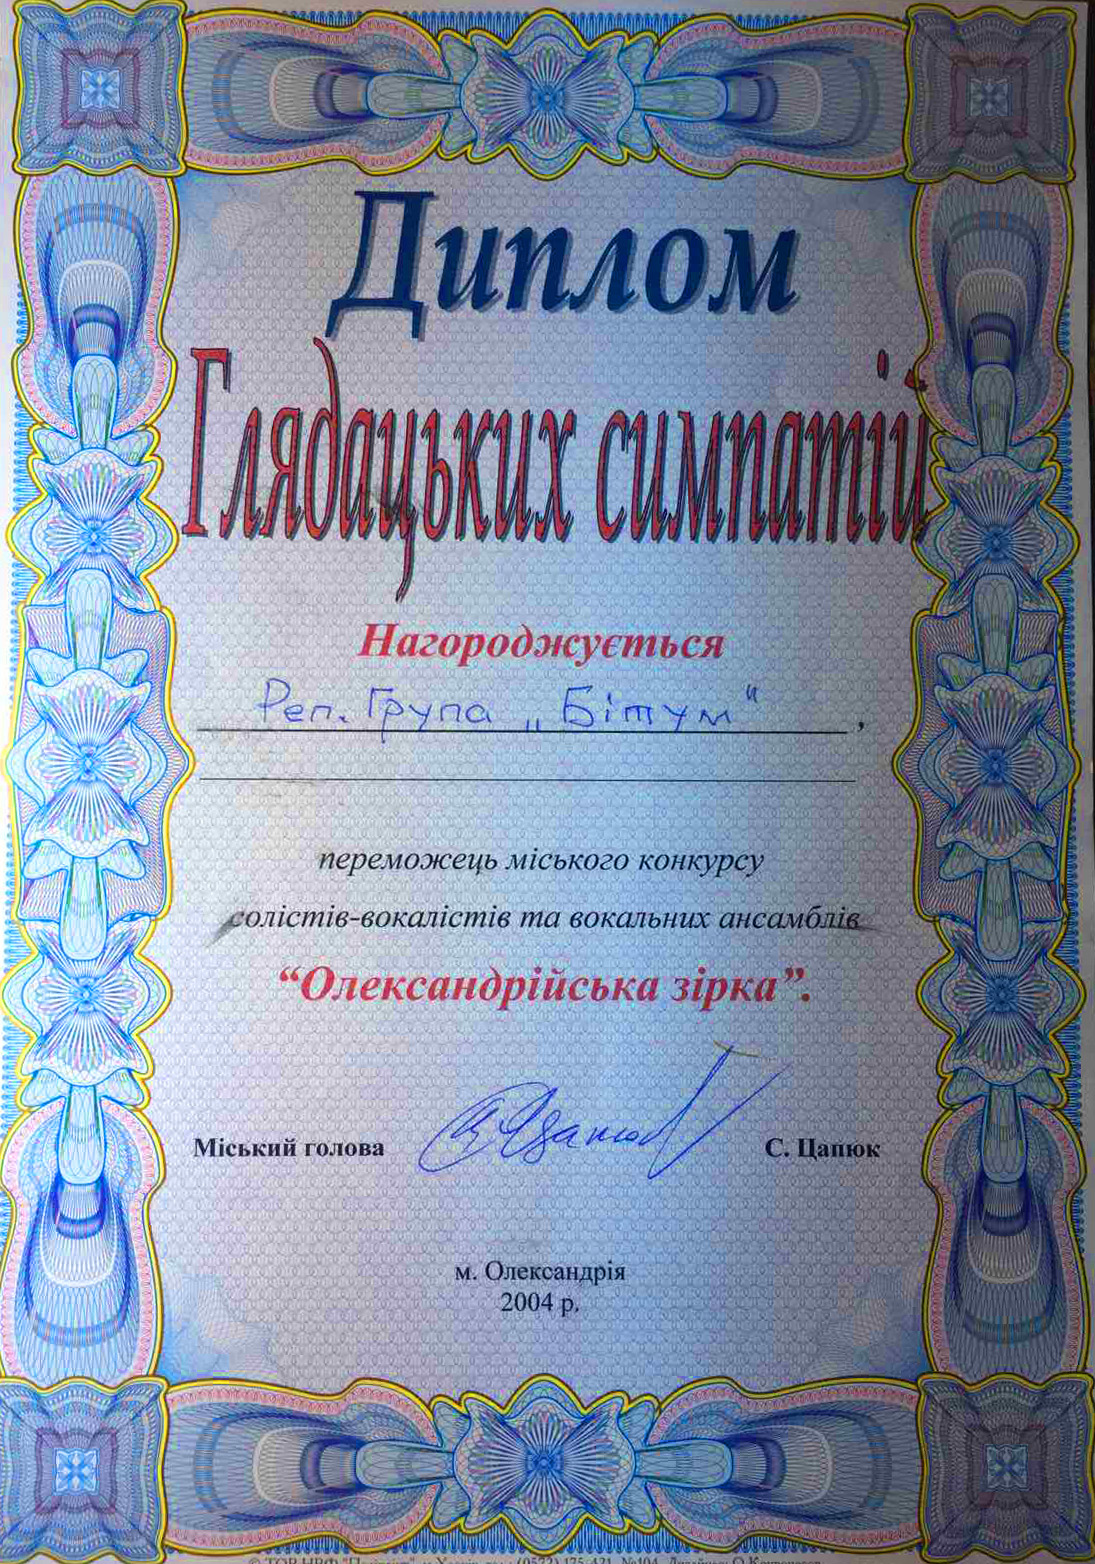 Диплом
Глядацьких симпатій
Нагороджується
Реп. Група „Бітум",
переможець міського конкурсу
солістів-вокалістів та вокальних ансамблів
“Олександрійська зірка”.
Міський голова С. Цапюк
м. Олександрія
2004 р.